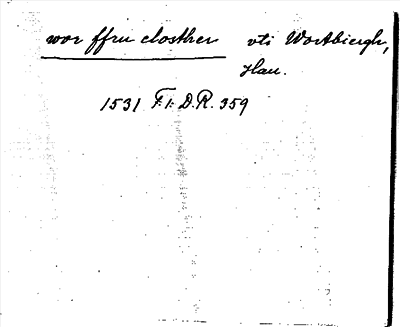 wor ffru closther vti Wortbiergh,
Han.
1531 F.I.D.R. 359